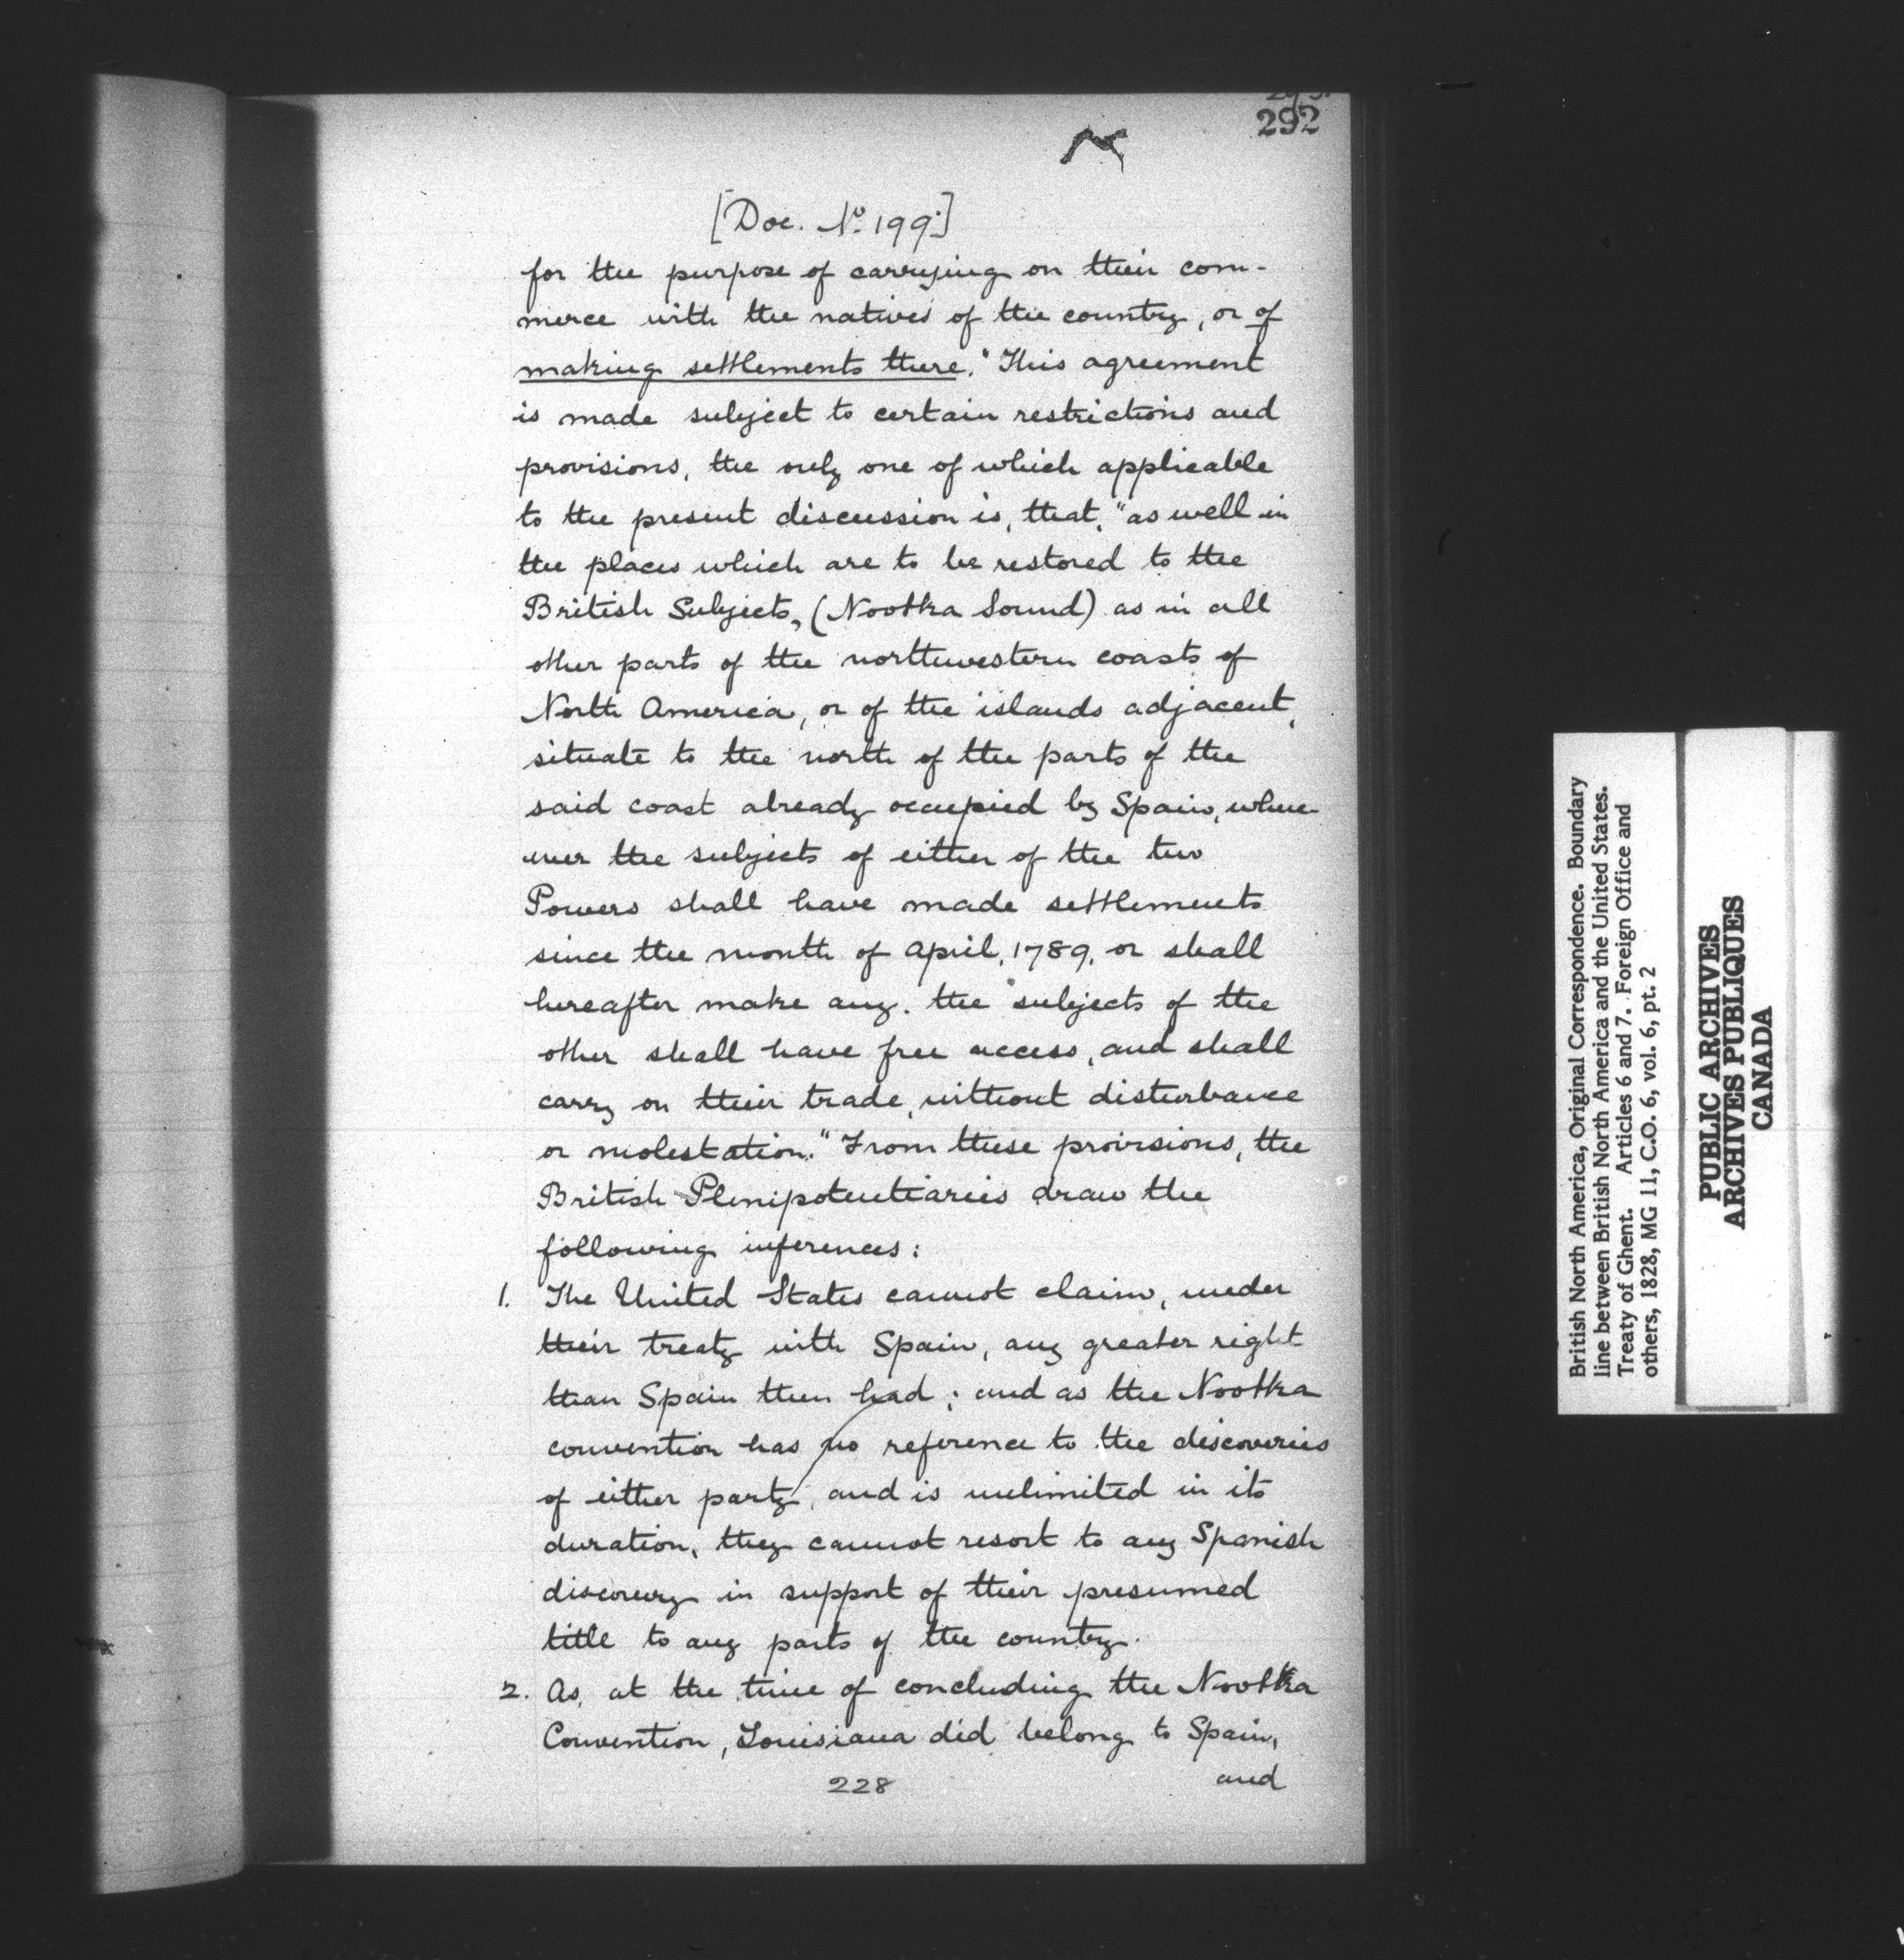 292
[Doc. No. 199.]
for the purpose of carrying on their com-
merce with the natives of the country, or of
making settlements there." This agreement
is made subject to certain restrictions and
provisions, the only one of which applicable
to the present discussion is, that, "as well in
the places which are to be restored to the
British Subjects, (Nootka Sound) as in all
other parts of the northwestern coasts of
North America, or of the islands adjacent,
situate to the north of the parts of the
said coast already occupied by Spain, where-
ever the subjects of either of the two
Powers shall have made settlements
since the month of April, 1789, or shall
hereafter make any. the subjects of the
other shall have free access, and shall
carry on their trade, without disturbance
or molestation." From these provisions, the
British Plenipotentiaries draw the
following inferences:
1. The United States cannot claim, under
their treaty with Spain, any greater right
than Spain then had; and as the Nootka
convention has no reference to the discoveries
of either party, and is unlimited in its
duration, they cannot resort to any Spanish
discovery in support of their presumed
title to any parts of the country.
2. As, at the time of concluding the Nootka
Convention, Louisiana did belong to Spain,
and
228
British North America, Original Correspondence. Boundary
line between British North America and the United States.
Treaty of Ghent. Articles 6 and 7. Foreign Office and
others, 1828, MG 11, C.O. 6, vol. 6, pt. 2
PUBLIC ARCHIVES
ARCHIVES PUBLIQUES
CANADA